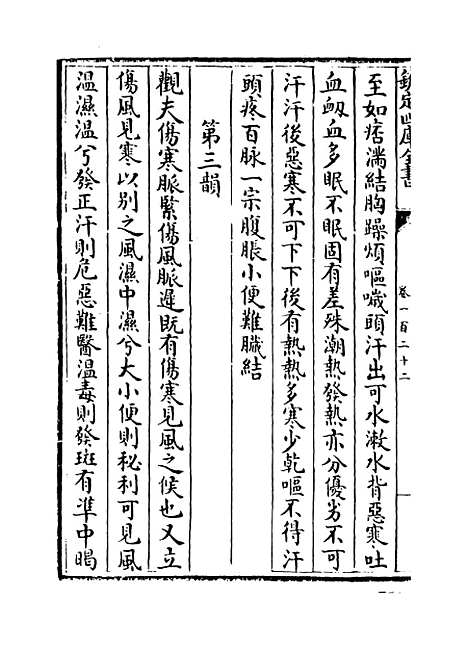 欽定四庫全書
卷一百二十二
至如痞滿結胸躁煩嘔噦頭汗出可水漱水背惡寒吐
血衂血多眠不眠固有差殊潮熱發熱亦分優劣不可
汗汗後惡寒不可下下後有熱熱多寒少乾嘔不得汗
頭疼百脉一宗腹脹小便難臟結
第三韻
觀夫傷寒脈緊傷風脈遲既有傷寒見風之候也又立
傷風見寒以別之風濕中濕兮大小便則秘利可見風
溫濕溫兮發正汗則危惡難醫溫毒則發斑有準中暍